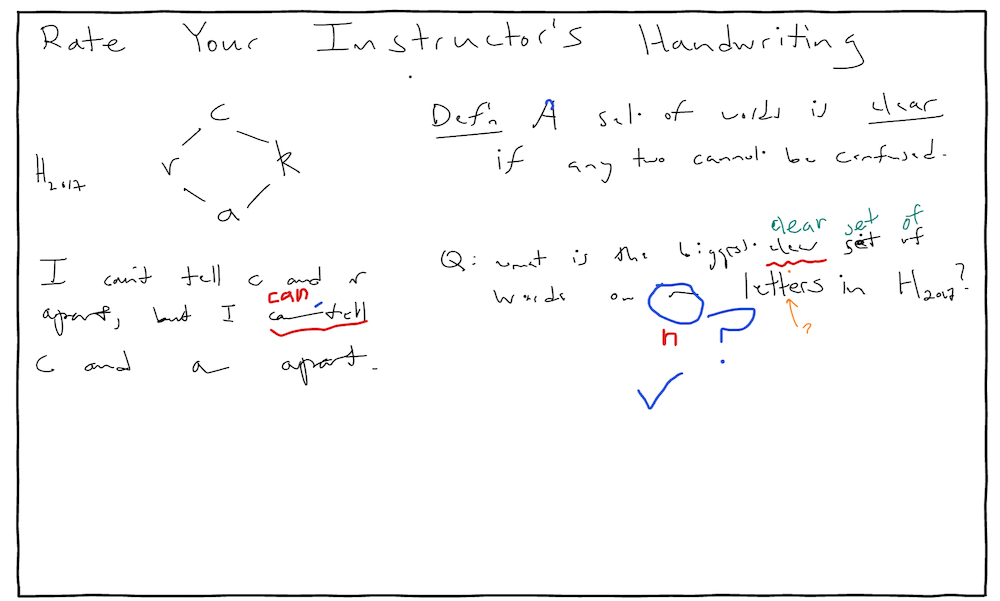 Rate Your Instructor's Handwriting
c
r k
a
H2017
I can't tell c and r
can
apart, but I can tell
c and a apart.
Def'n A set of words is clear
if any two cannot be confused.
clear set of
Q: what is the biggest clear set of
words on n letters in H2017?
n ? ?